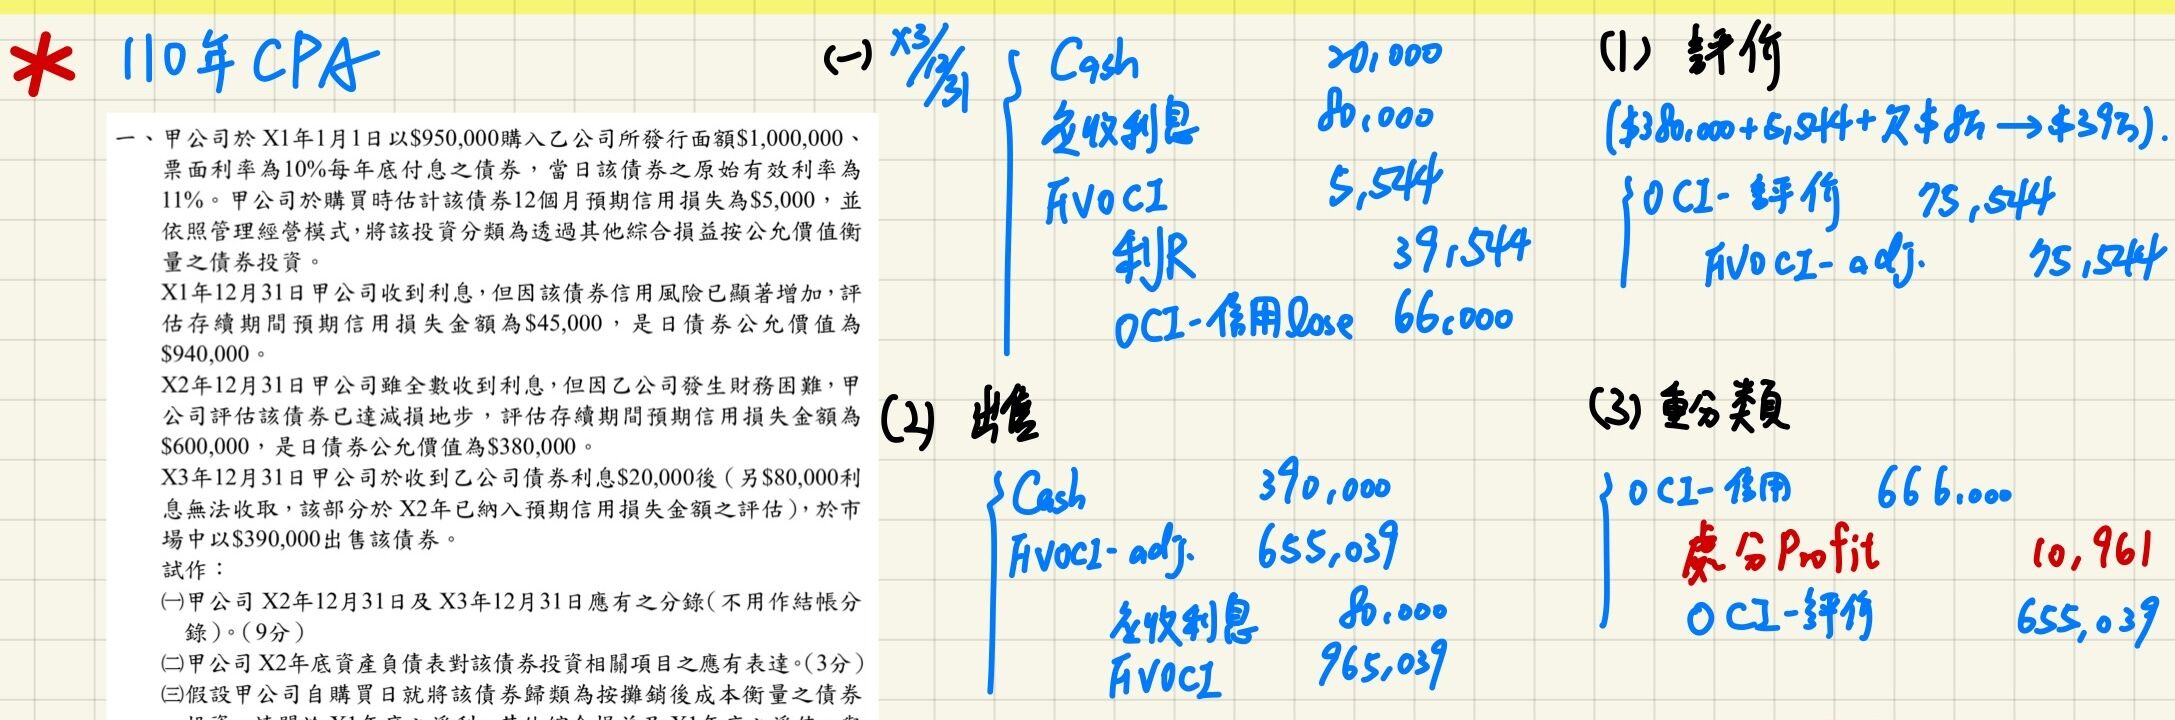 110年 CPA
一、甲公司於 X1年1月1日以$950,000購入乙公司所發行面額$1,000,000、
票面利率為10%每年底付息之債券,當日該債券之原始有效利率為
11%。甲公司於購買時估計該債券12個月預期信用損失為$5,000,並
依照管理經營模式,將該投資分類為透過其他綜合損益按公允價值衡
量之債券投資。
X1年12月31日甲公司收到利息,但因該債券信用風險已顯著增加,評
估存續期間預期信用損失金額為$45,000,是日債券公允價值為
$940,000。
X2年12月31日甲公司雖全數收到利息,但因乙公司發生財務困難,甲
公司評估該債券已達減損地步,評估存續期間預期信用損失金額為
$600,000,是日債券公允價值為$380,000。
X3年12月31日甲公司於收到乙公司債券利息$20,000後(另$80,000利
息無法收取,該部分於 X2年已納入預期信用損失金額之評估),於市
場中以$390,000出售該債券。
試作:
㈠甲公司 X2年12月31日及 X3年12月31日應有之分錄(不用作結帳分
錄)。(9分)
㈡甲公司 X2年底資產負債表對該債券投資相關項目之應有表達。(3分)
㈢假設甲公司自購買日就將該債券歸類為按攤銷後成本衡量之債券
(一) X3/12/31
Cash 20,000
應收利息 80,000
FVOCI 5,544
利R 39,544
OCI-信用lose 66,000
(1) 評價
($380,000+5,544+欠$8萬→$39萬).
OCI-評價 75,544
FVOCI-adj. 75,544
(2) 出售
Cash 390,000
FVOCI-adj. 655,039
應收利息 80,000
FVOCI 965,039
(3) 重分類
OCI-信用 666,000
處分Profit 10,961
OCI-評價 655,039